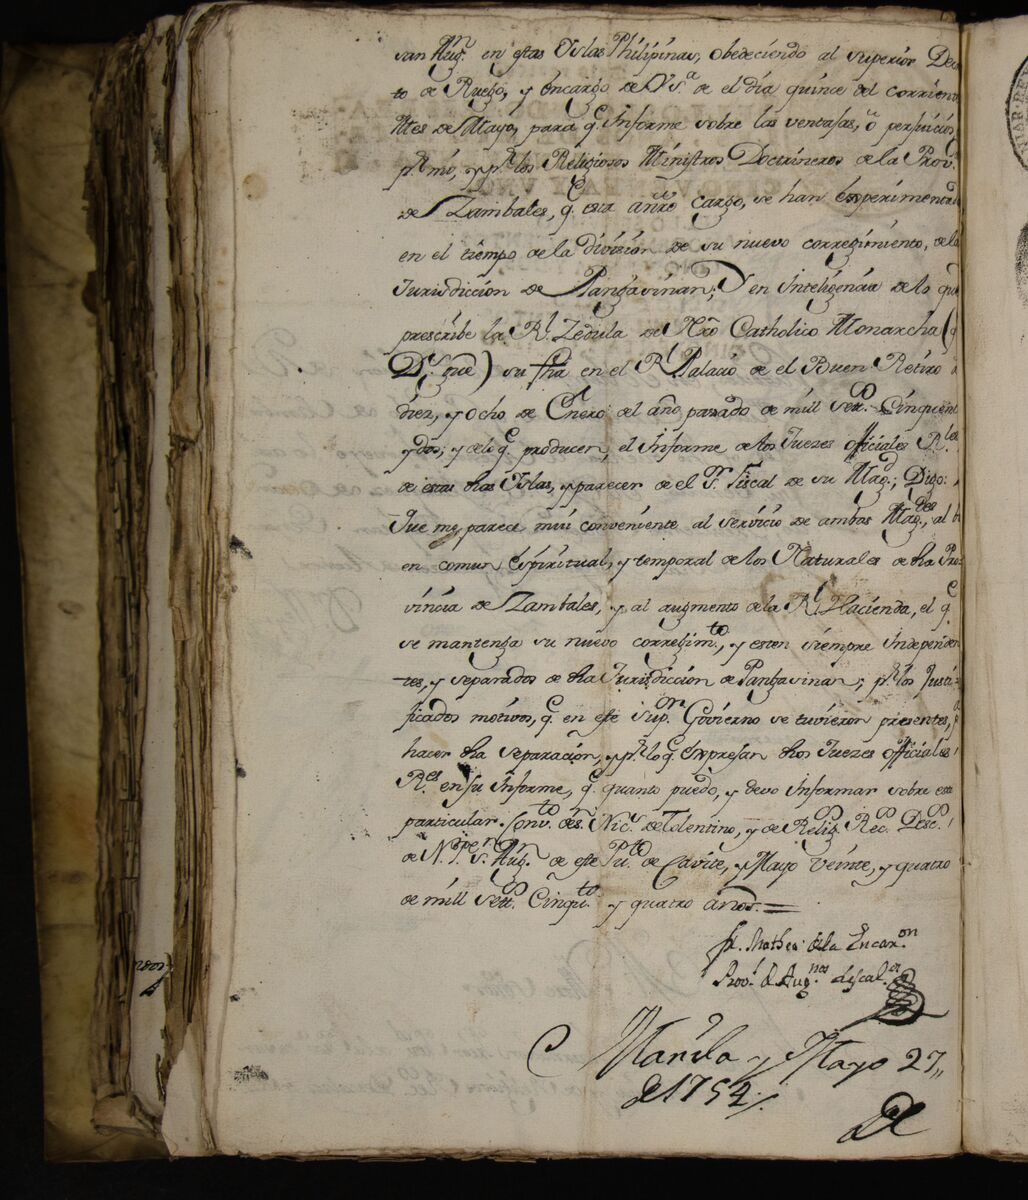 san Aug.n en estas Yslas Philipinas, obedeciendo al superior Decre
to de Ruego, y encargo de V S.a de el día quince del corriente
Mes de Mayo, para q.e Informe sobre las ventajas, ò perjuicios,
p.r mi, y p.r los Religiosos Ministros Doctrineros de la Prov.a
de Zambales, q.e esta a nrô cargo, se han experimentado
en el tiempo de la división de su nuevo corregimiento, de la
Jurisdiccion de Pangasinan; Y en Inteligencia de lo que
prescribe la R.l Zedula de Nrô Catholico Monarcha (q
D.s gûe) su fha en el R.l Palacio de el Buen Retiro à
diez, y ocho de Enero del año passado de mill sett.os Cinquenta
y dos; y de lo q.e producen, el Informe de los Juezes officiales R.les
de estas dhas Yslas, y parecer de el S.r Fiscal de su Mag.d; Digo:
Que me parece mui conveniente al servicio de ambas Mag.des, al
en comun Espiritual, y temporal de los Naturales de dha Pro-
vincia de Zambales, y al augmento de la R.l Hacienda, el q.e
se mantenga su nuevo corregim.to, y esten siempre Independen
tes, y separados de dha Jurisdiccion de Pangasinan; p.r los Justi-
ficados motivos, q.e en este Sup.or Govierno se tuvieron presentes,
hacer dha separacion, y p.r lo q.e Expresan dhos Juezes officiales
R.es en su Informe, q.e quanto puedo, y devo Informar sobre este
particular. Conv.to de S. Nic.s de Tolentino, y de Relig.os Rec.os Desc.os
de N. P. S. Aug.n de este Pu.to de Cavite, y Mayo Veinte, y quatro
de mill sett.os Cinqu.ta y quatro años.=
fr. Matheo de la Encar.on
Prov.l d Aug.nos discal.os
Manila y Mayo 27,,
de 1754,